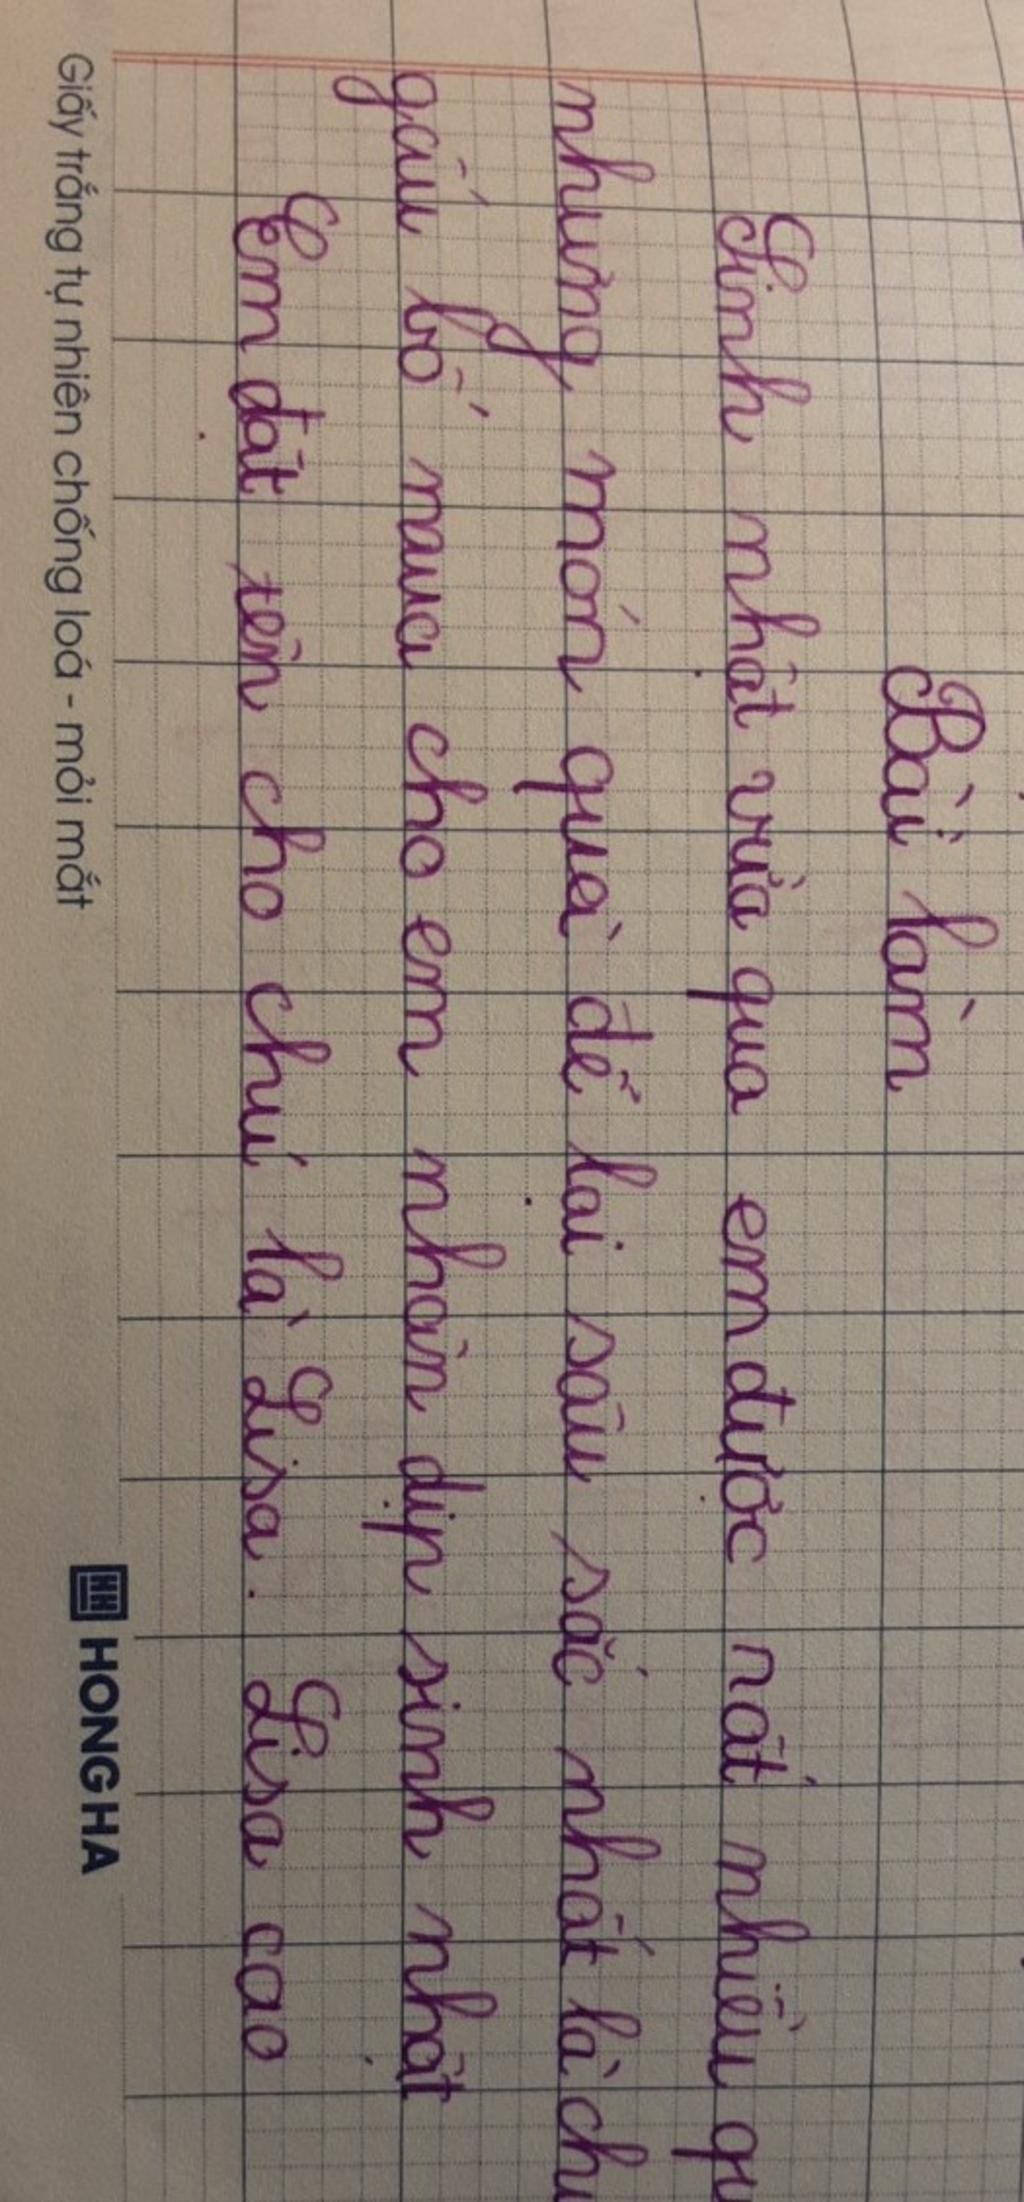 Bài làm
Sinh nhật vừa qua em được rất nhiều
những món quà để lại sâu sắc nhất là
gấu bố mua cho em nhân dịp sinh nhật
Em đặt tên cho chú là Lisa. Lisa cao
Giấy trắng tự nhiên chống loá - mỏi mắt
HONG HA